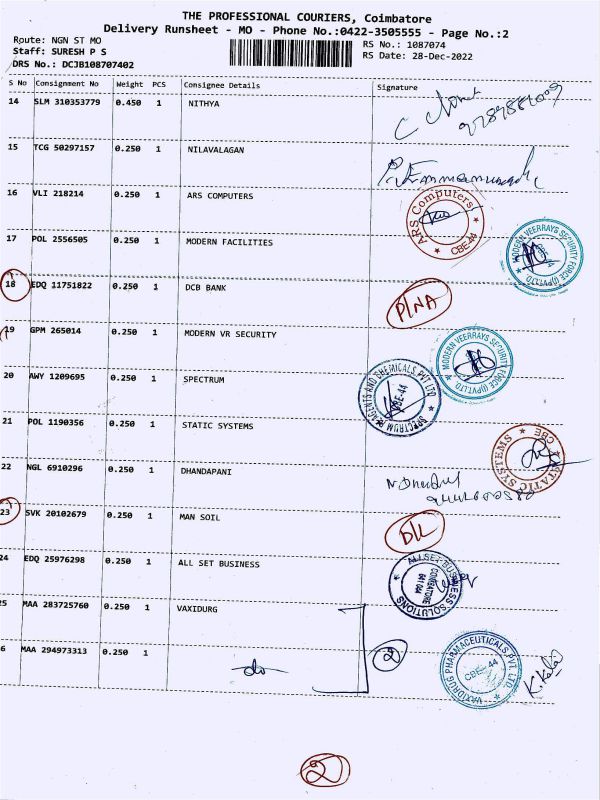 THE PROFESSIONAL COURIERS, Coimbatore
Delivery Runsheet - MO - Phone No.:0422-3505555 - Page No.:2
Route: NGN ST MO
RS No.: 1087074
Staff: SURESH P S
RS Date: 28-Dec-2022
DRS No.: DCJB108707402
S No Consignment No Weight PCS Consignee Details Signature
14 SLM 310353779 0.450 1 NITHYA
15 TCG 50297157 0.250 1 NILAVALAGAN
16 VLI 218214 0.250 1 ARS COMPUTERS
ARS Computers CBE-44
17 POL 2556505 0.250 1 MODERN FACILITIES
MODERN VEERRAYS SECURITY FORCE (I)PVT.LTD
18 EDQ 11751822 0.250 1 DCB BANK
P/NA
19 GPM 265014 0.250 1 MODERN VR SECURITY
MODERN VEERRAYS SECURITY FORCE (I)PVT.LTD
20 AWY 1209695 0.250 1 SPECTRUM
SPECTRUM REAGENTS AND CHEMICALS PVT LTD CBE-44
21 POL 1190356 0.250 1 STATIC SYSTEMS
STATIC SYSTEMS CBE
22 NGL 6910296 0.250 1 DHANDAPANI
23 SVK 20102679 0.250 1 MAN SOIL
D/L
24 EDQ 25976298 0.250 1 ALL SET BUSINESS
ALLSET BUSINESS SOLUTIONS COIMBATORE 641 044
25 MAA 283725760 0.250 1 VAXIDURG
6 MAA 294973313 0.250 1 do
2
VAXIDRUG PHARMACEUTICALS PVT. LTD. CBE-44
2